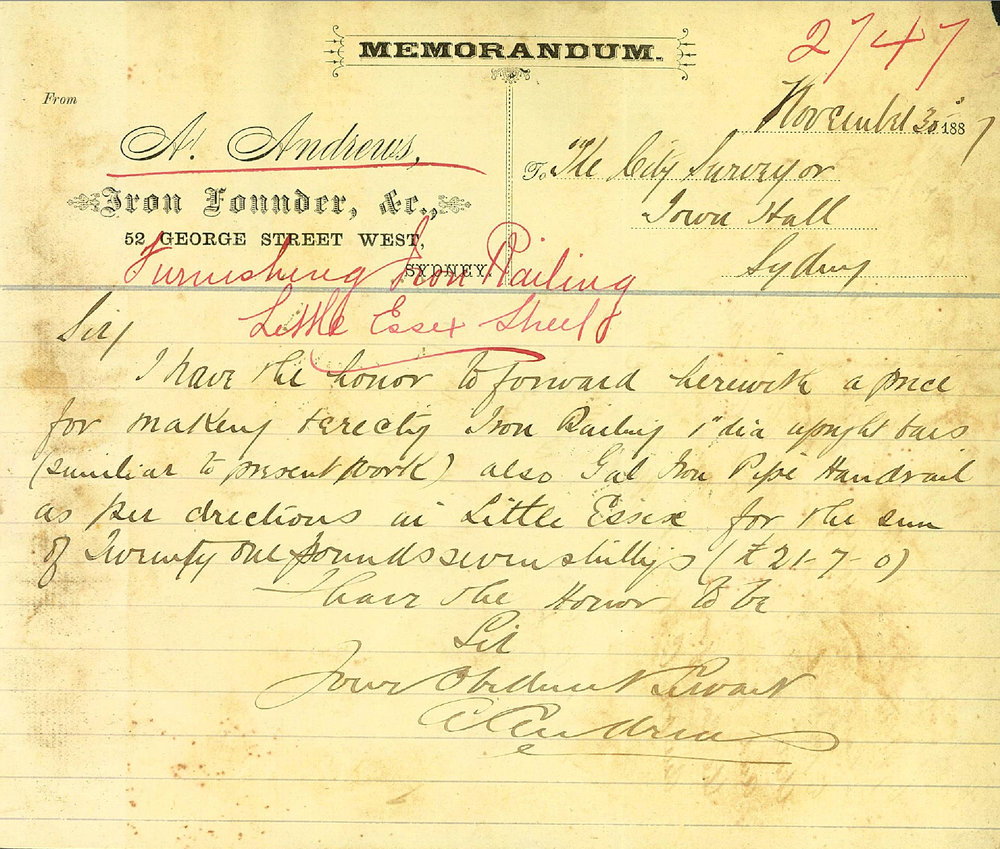 MEMORANDUM.
2747
From
November 30 1887
A. Andrews,
To The City Surveyor
Iron Founder, &c.,
Town Hall
52 GEORGE STREET WEST,
SYDNEY.
Sydney
Furnishing Iron Railing
Little Essex Street
Sir
I have the honor to forward herewith a price
for making & erectg Iron Railing 1" dia upright bars
(similiar to present work) also Gal Iron Pipe Handrail
as per directions in Little Essex for the sum
of Twenty one pounds seven shillgs (£21-7-0)
I have the Honor to be
Sir
Your Obedient Servant
A Andrews